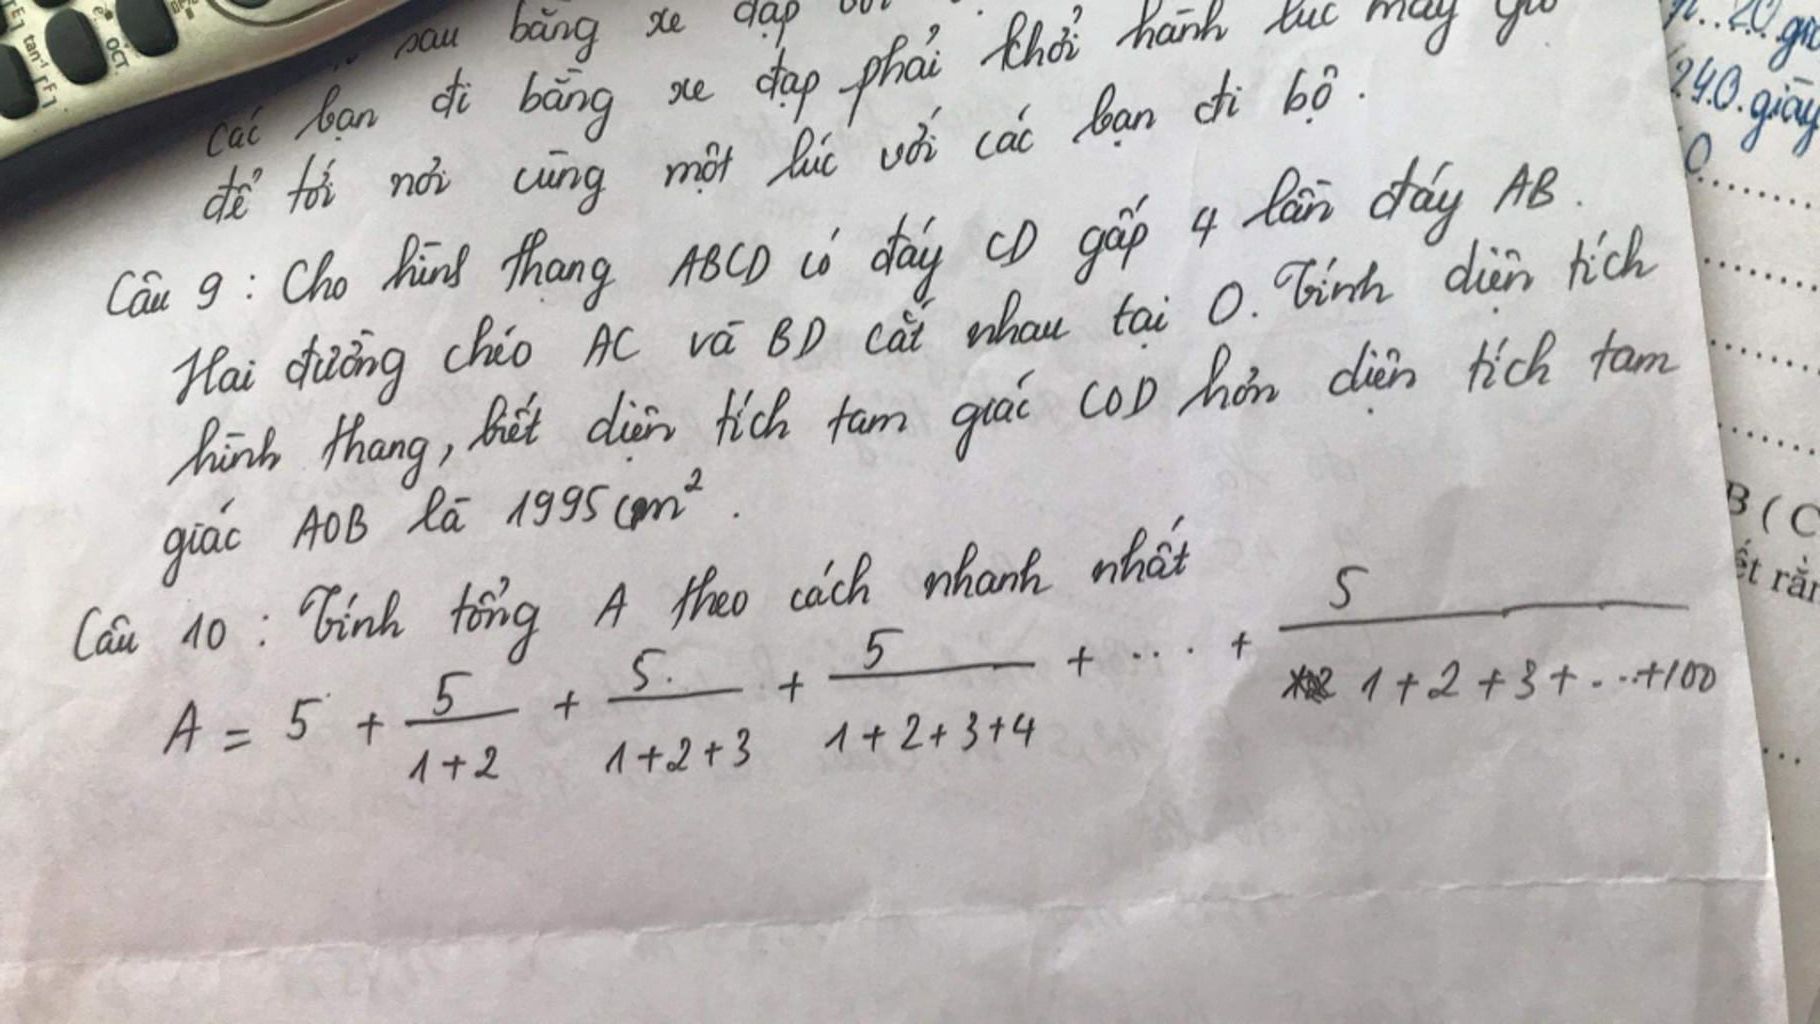 sau bằng xe đạp
Các bạn đi bằng xe đạp phải khởi hành lúc mấy giờ
để tới nơi cùng một lúc với các bạn đi bộ.
Câu 9: Cho hình thang ABCD có đáy CD gấp 4 lần đáy AB.
Hai đường chéo AC và BD cắt nhau tại O. Tính diện tích
hình thang, biết diện tích tam giác COD hơn diện tích tam
giác AOB là 1995 cm².
Câu 10: Tính tổng A theo cách nhanh nhất
A = 5 + 5/(1+2) + 5/(1+2+3) + 5/(1+2+3+4) + .... + 5/(1+2+3+...+100)
20 giờ
240 giây
0
B (C
tan⁻¹
OCT